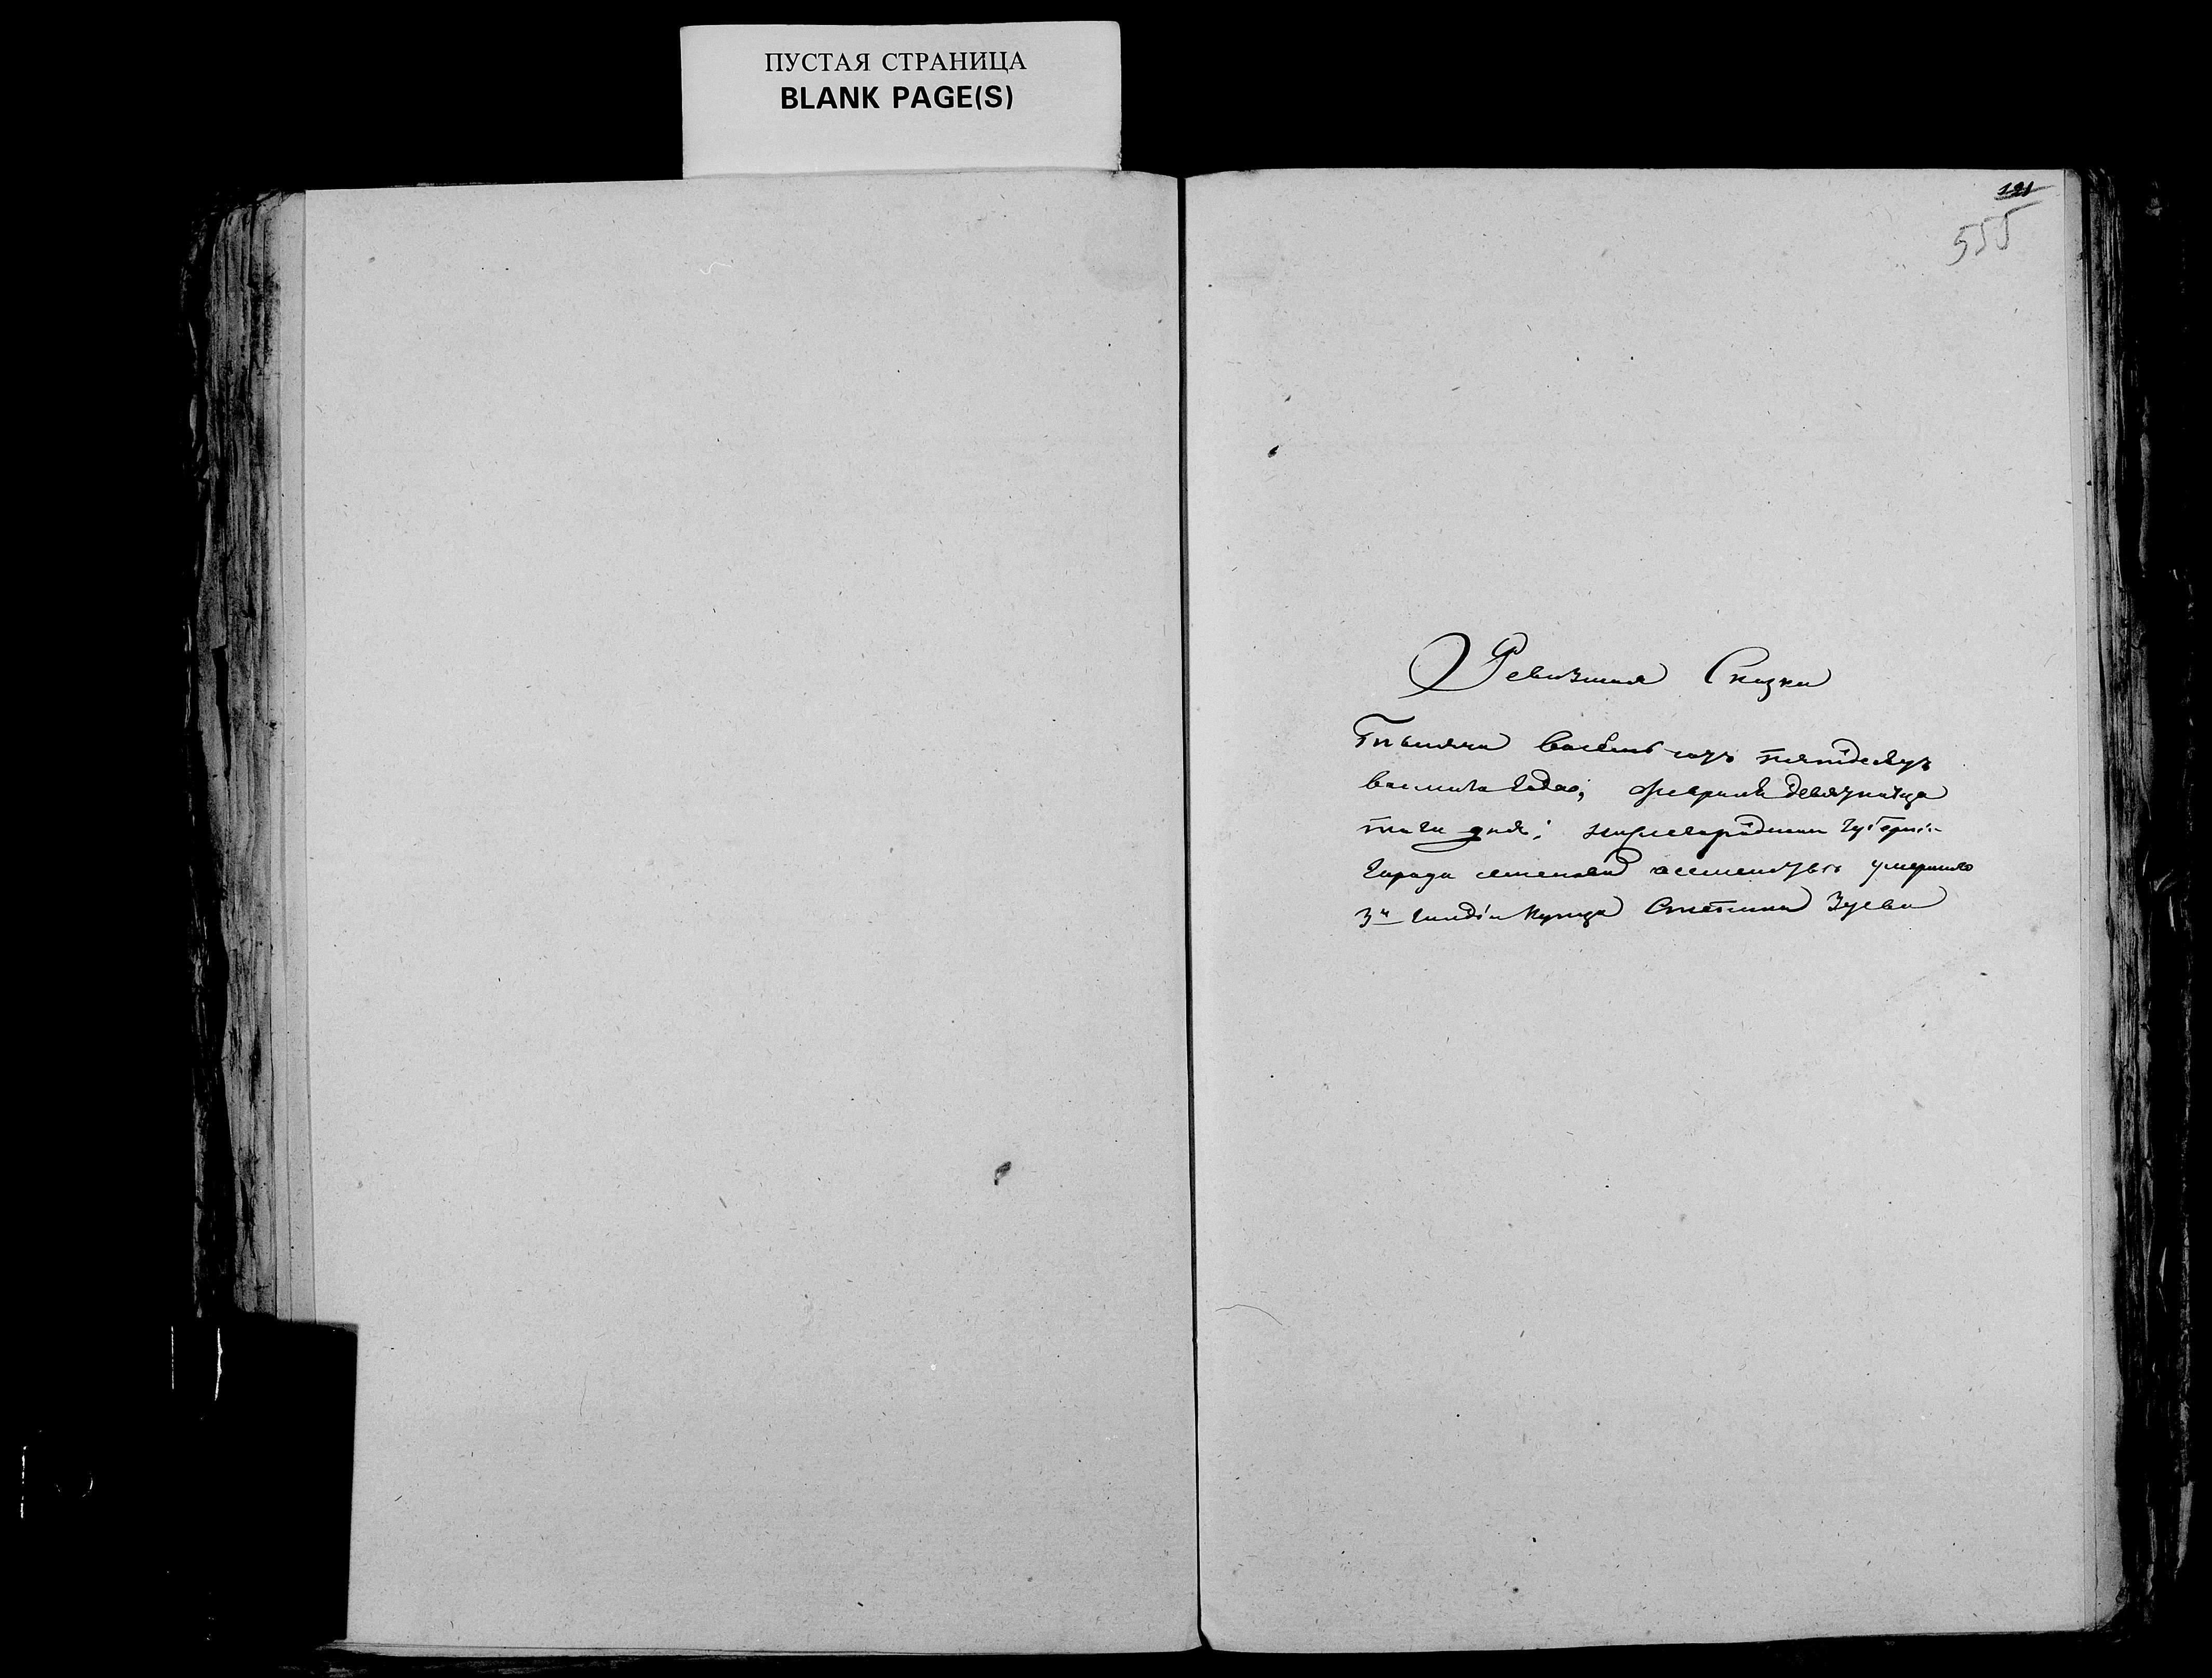 ПУСТАЯ СТРАНИЦА
BLANK PAGE(S)
121
555
Ревизшая Сказка
Тысяча восемь сотъ пятдесятъ
восмаго года, февраля девятнатца
таго дня; нижегородской губерніи
города семенова о семействѣ умершаго
3й гилдіи купца Степана Зуева